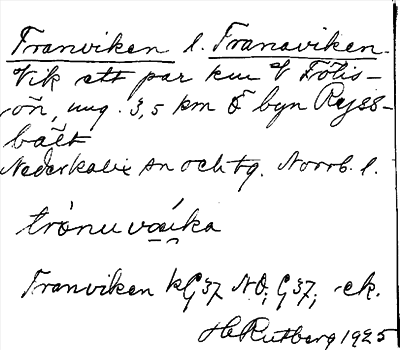 Tranviken l. Tranaviken.
Vik ett par km V Fölis-
ön, ung. 3,5 km Ö byn Ryss-
bält
Nederkalix sn och tg. Norrb. l.
trònuvaíka
Tranviken kG 37 NO; G 37; -ek.
H Rutberg 1925